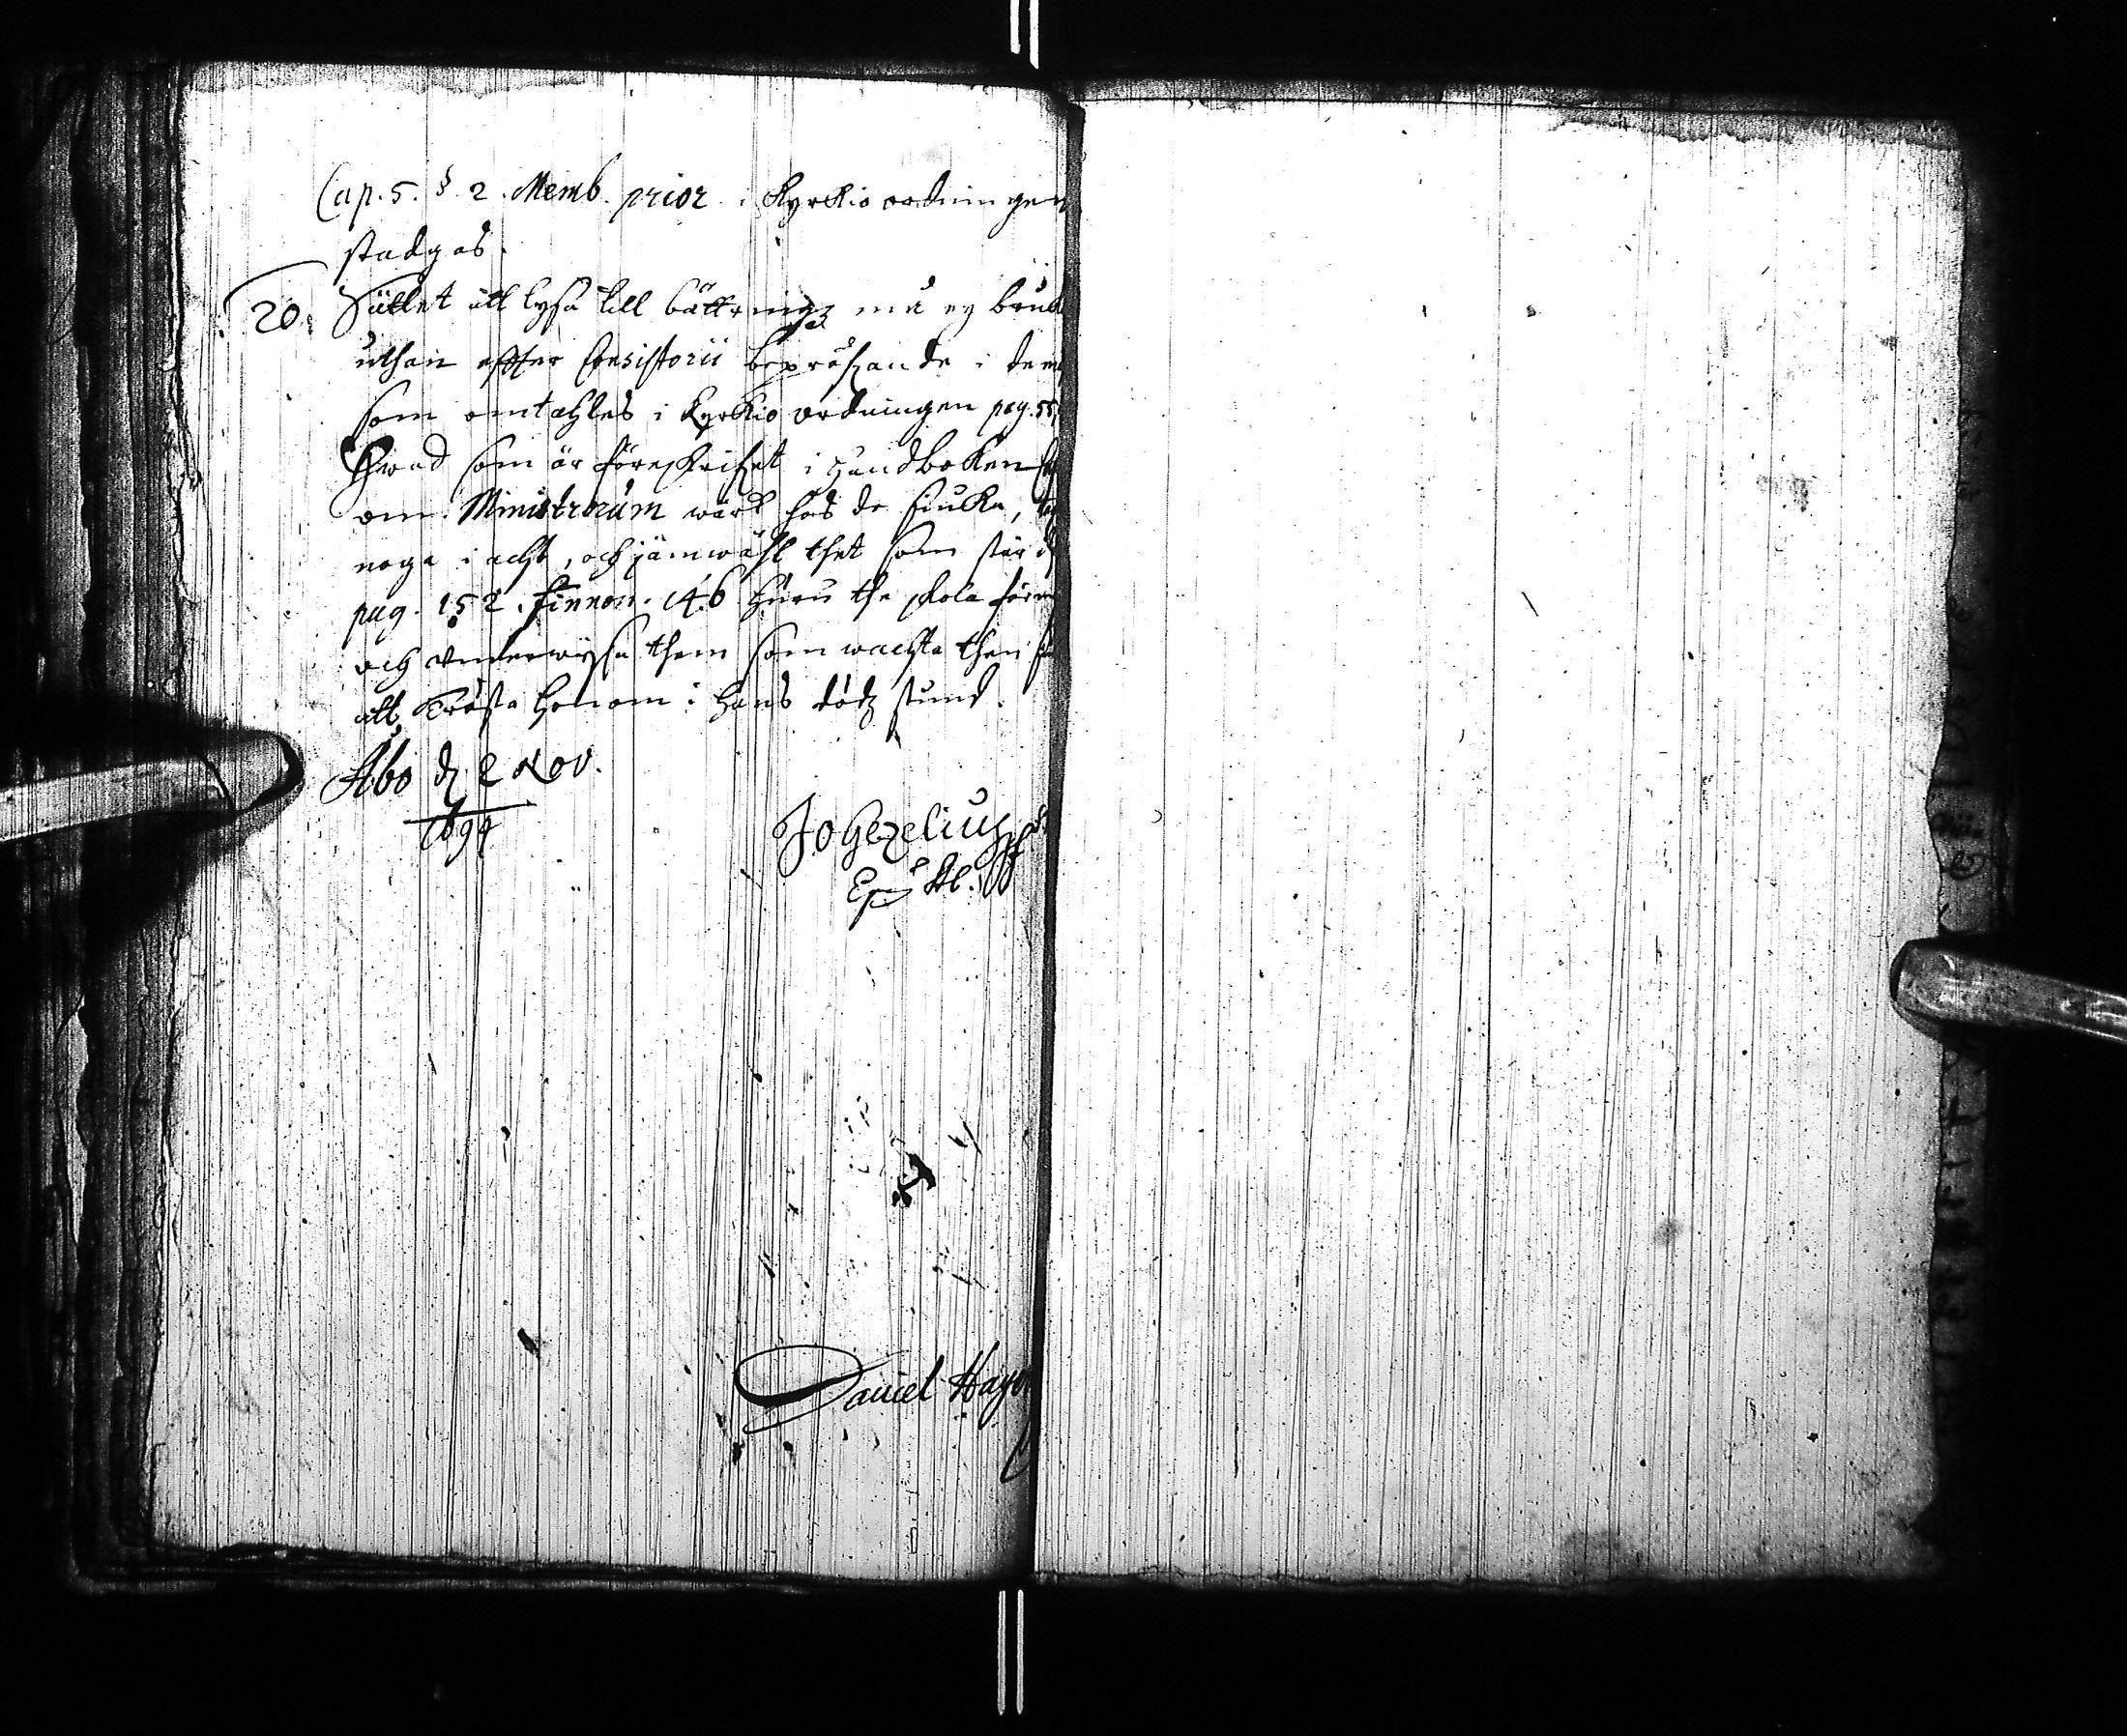 Cap. 5. § 2. Memb. prior. i Kyrkio ordningen
stadgas.
20. Sättet att lysa till bättring må ey bruk
uthan effter Consistorii bepröfvande i dem
som omtahles i Kyrkio ordningen pag. 55,
Hwad som är föreskrifvet i Handboken
om Ministrorum wärk hos de siuka,
noga i acht, och jämwähl thet som står
pag. 152. finnon. 146 huru the skola för
och underwysa them som wachta then
att trösta honom i hans dödz stund.
Åbo d. 2 Nov.
1694
Jo Gezelius
Eps Ab.
Daniel Hayo